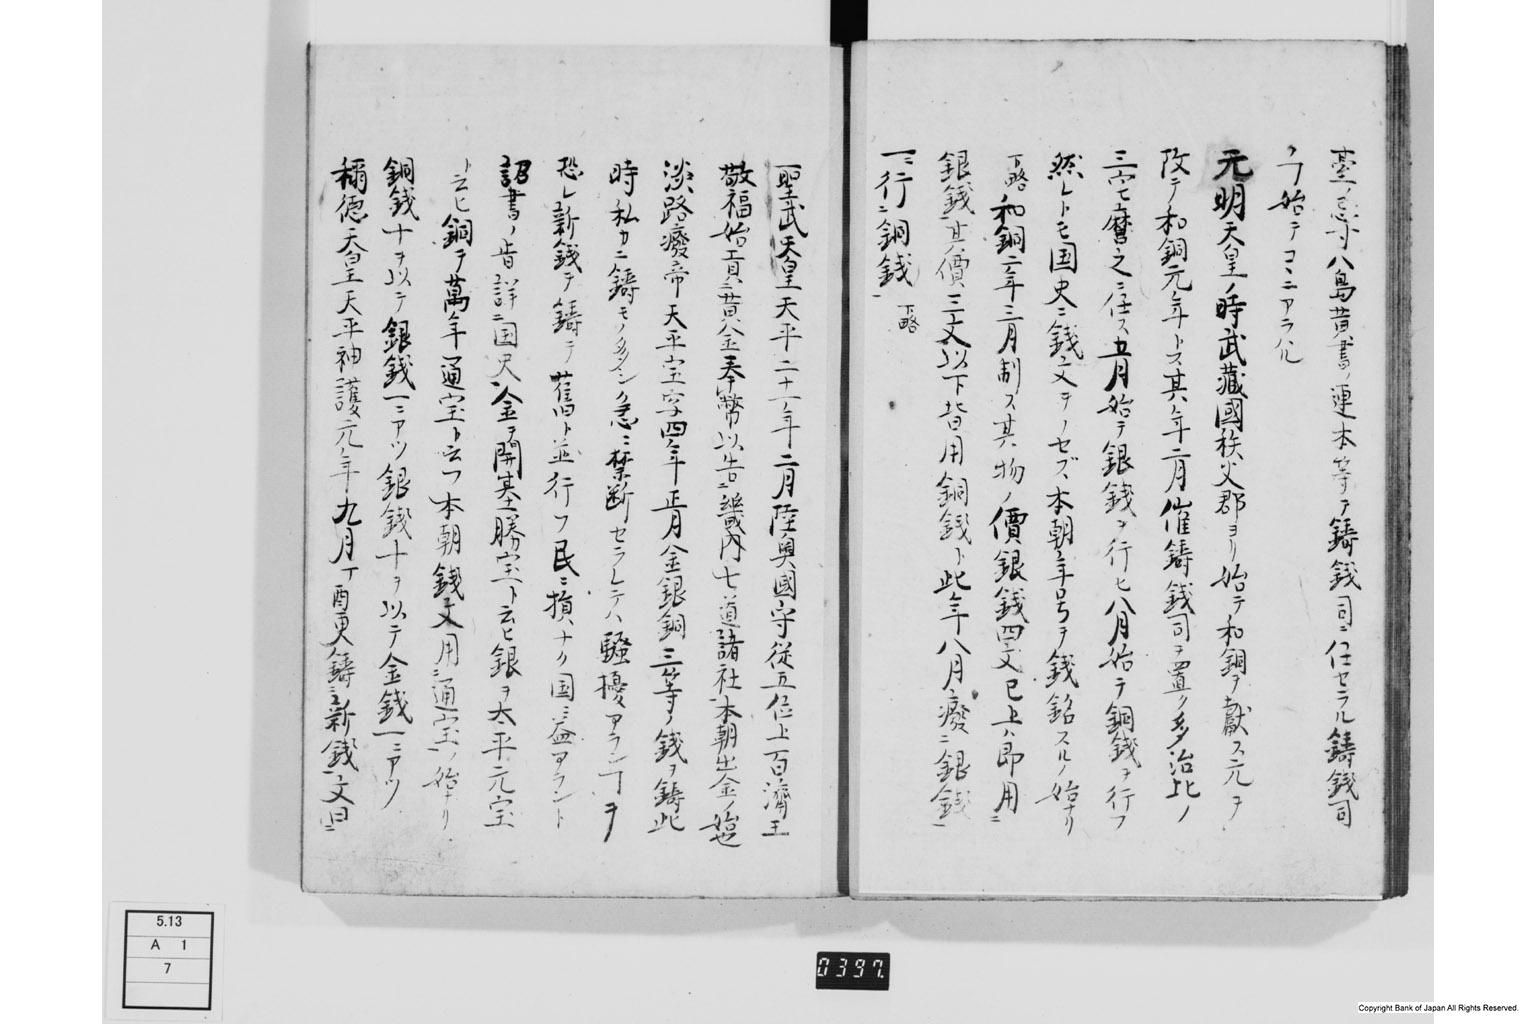 臺ノ忌寸八島黄書ノ連本等ヲ鋳銭司ニ任セラル鋳銭司
ノヿ始テコヽニアラハル
元明天皇ノ時武蔵國秩父郡ヨリ始テ和銅ヲ献ス元ヲ
改テ和銅元年トス其ノ年二月催鋳銭司ヲ置ク多治比ノ
三宅麿之ニ任ス五月始テ銀銭ヲ行ヒ八月始テ銅銭ヲ行フ
然レトモ国史ニ銭文ヲノセズ本朝年号ヲ銭銘スルノ始ナリ
下略 和銅二年三月制ス其物ノ價銀銭四文已上ハ即用ニ
銀銭一其價三文以下皆用銅銭ト此年八月廃ニ銀銭一
一ニ行ニ銅銭一 下略
聖武天皇天平二十一年二月陸奥國守従五位上百濟王
敬福始貢ニ黄金奉幣以告ニ畿内七道諸社一本朝出金ノ始也
淡路廢帝天平宝字四年正月金銀銅三等ノ銭ヲ鋳此
時私カニ鋳モノ多シク急ニ禁断セラレテハ騒擾アランヿヲ
恐レ新銭ヲ鋳テ舊ト並行フ民ニ損ナク国ニ益アラント
詔書ノ旨詳ニ国史金ヲ開基勝宝ト云ヒ銀ヲ太平元宝
ト云ヒ銅ヲ萬年通宝ト云フ本朝銭文用ニ通宝一ノ始ナリ
銅銭十ヲ以テ銀銭一ニアツ銀銭十ヲ以テ金銭一ニアツ
稱徳天皇天平神護元年九月丁酉更鋳ニ新銭一文曰ニ
5.13
A 1
7
0397.
Copyright Bank of Japan All Rights Reserved.